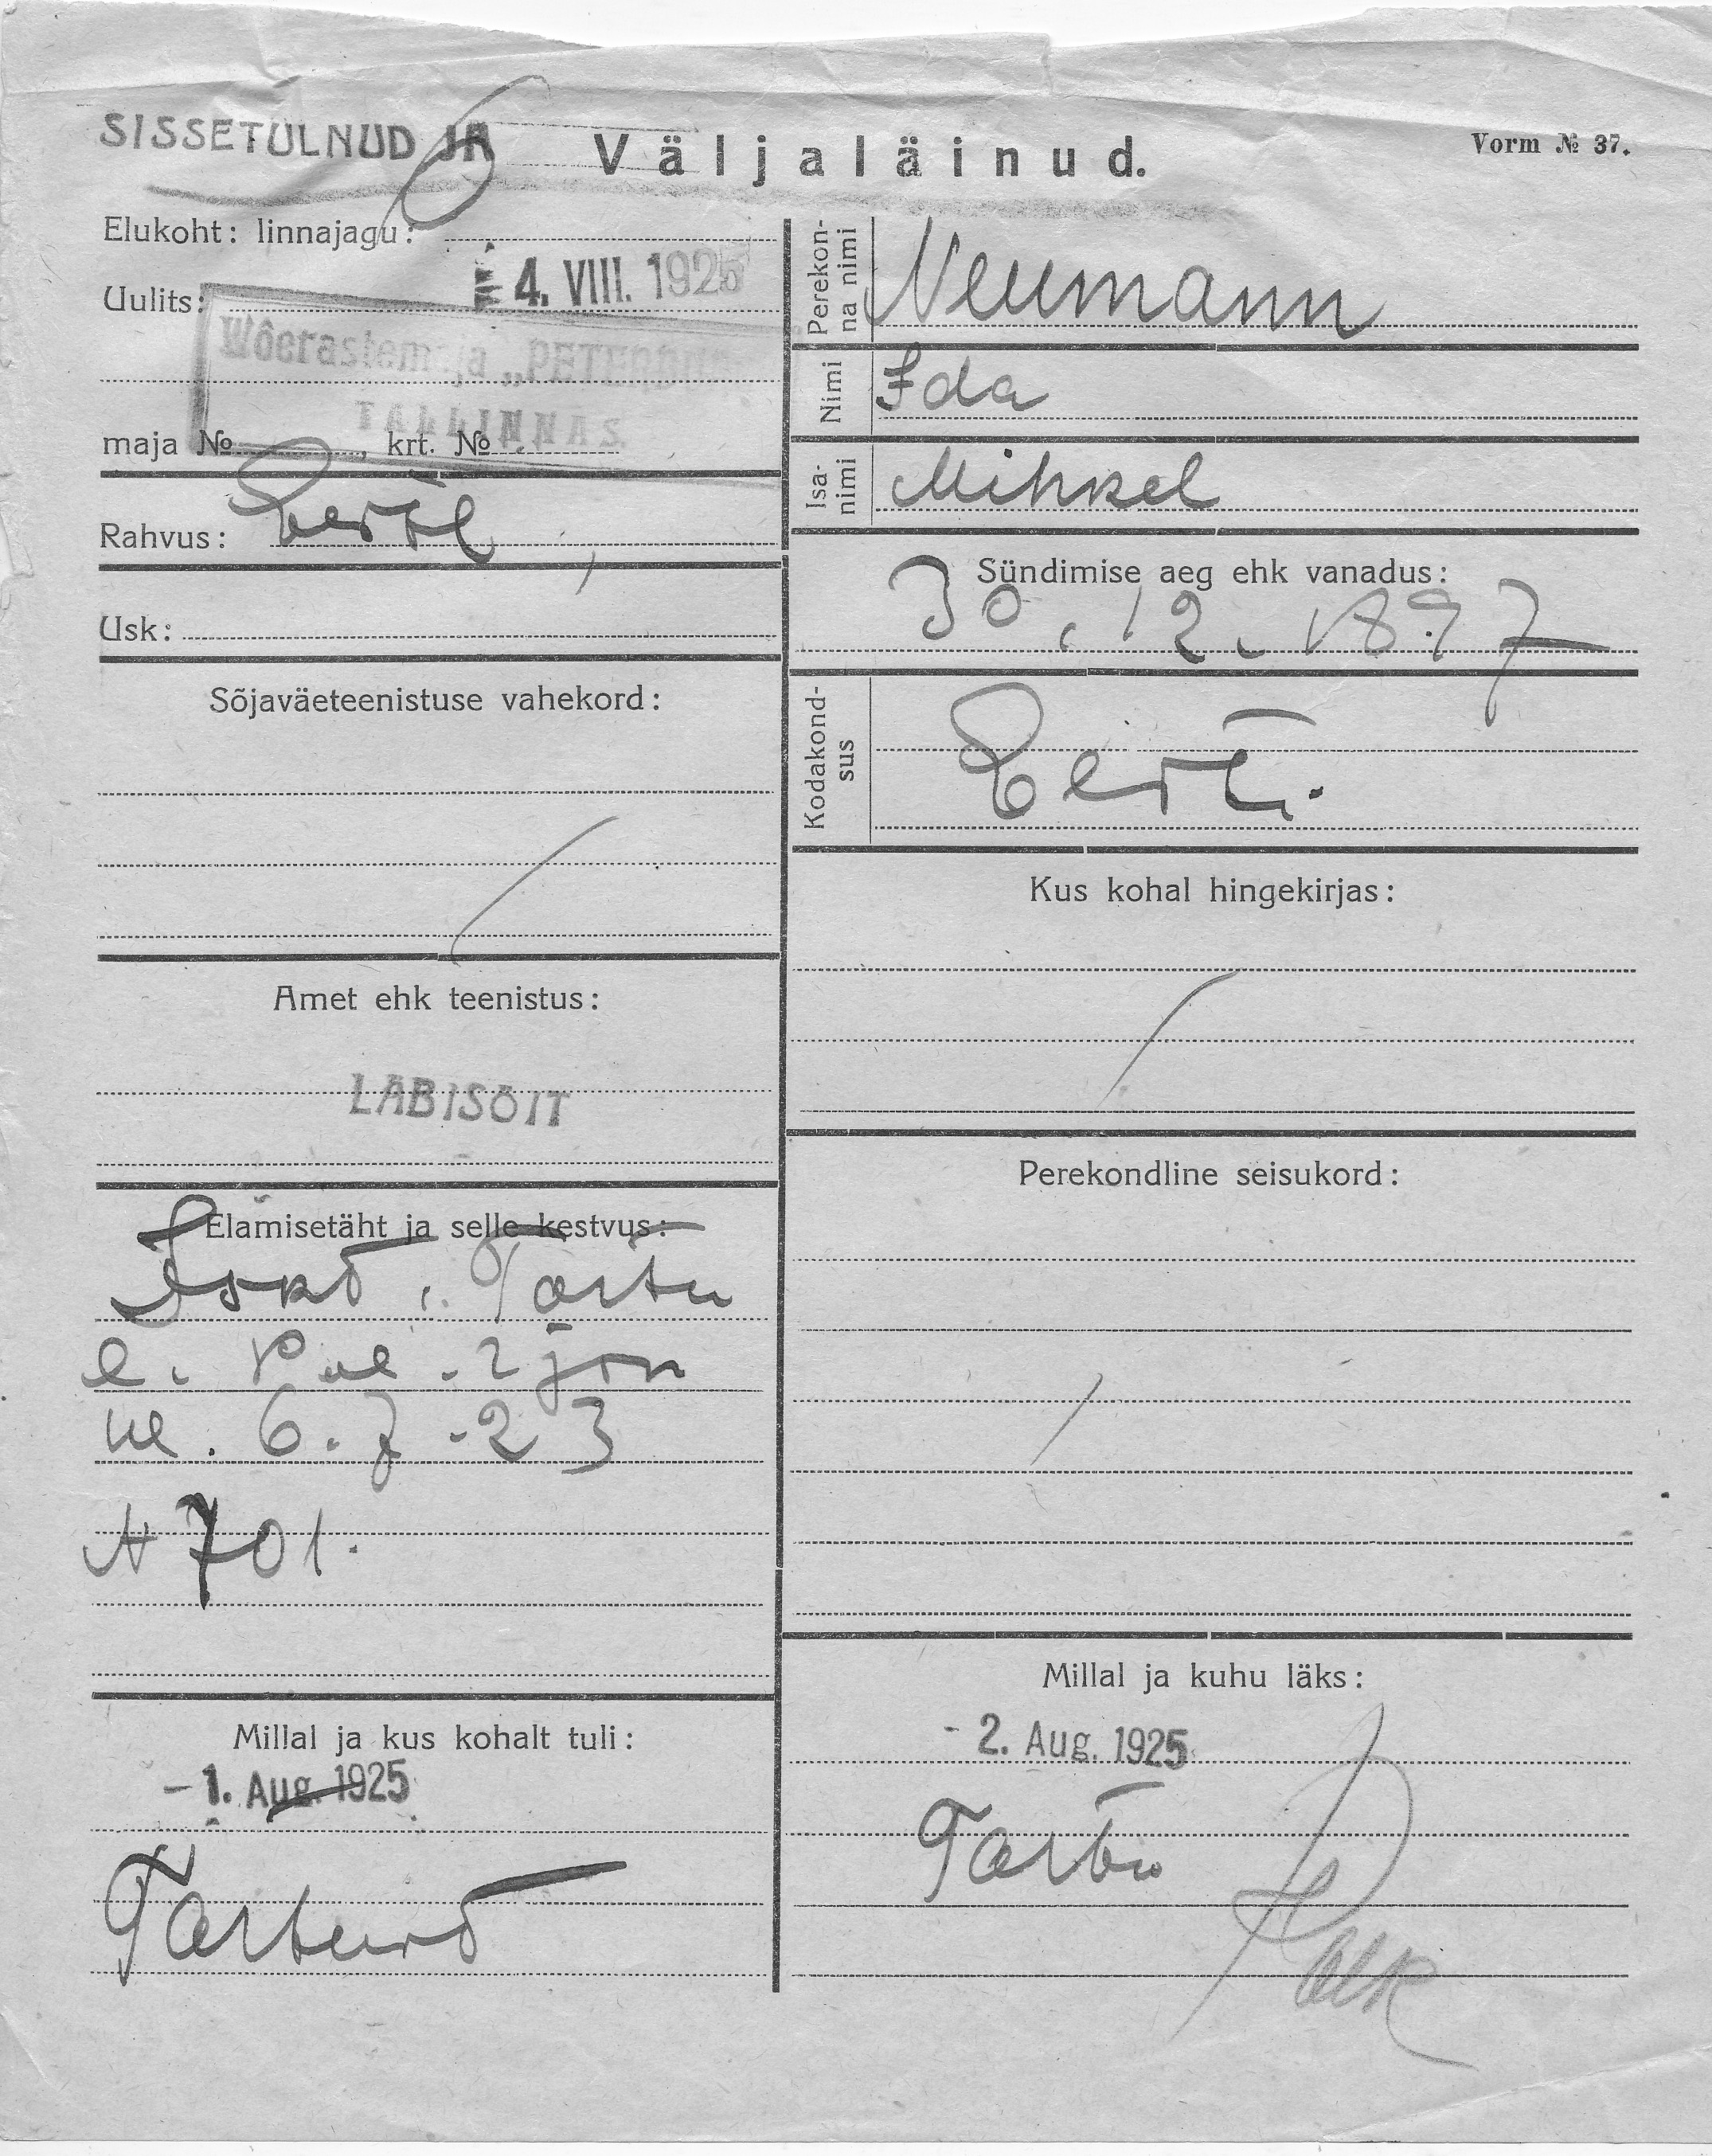 SISSETULNUD JA Väljaläinud.
Vorm № 37.
Elukoht: linnajagu:
4. VIII. 1925
Uulits:
Wõerastemaja „PETERBURG
TALLINNAS.
maja № , krt. №
Rahvus: Eestl
Usk:
Sõjaväeteenistuse vahekord:
Amet ehk teenistus:
LÄBISÕIT
Elamisetäht ja selle kestvus:
Iskt. Tartu
l. Pol. 2 jsk
vl. 6.7.23
N 701.
Millal ja kus kohalt tuli:
-1. Aug. 1925
Tartust
Perekon-
na nimi
Neumann
Nimi
Ida
Isa-
nimi
Mihkel
Sündimise aeg ehk vanadus:
30.12.1897
Kodakond-
sus
Eesti.
Kus kohal hingekirjas:
Perekondline seisukord:
Millal ja kuhu läks:
-2. Aug. 1925
Tartu